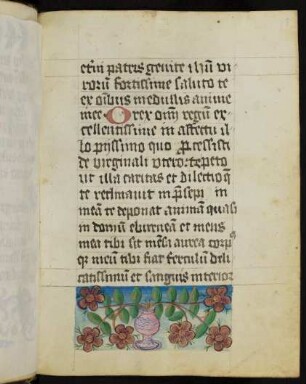 etim patris genite ihu vi
rorum fortissime saluto te
ex oibus medullis anime
mee O rex omi regu ex
cellentissime in affectu il
lo piissimo quo processisti
de virginali vtero te peto
vt illa caritas et dilectio q
te reclinauit in psepi in
mea te deponat animam quasi
in domu eburneam et mens
mea tibi sit mesa aurea corp9
qz meu tibi fiat ferculu deli
catissimu et sanguis interior